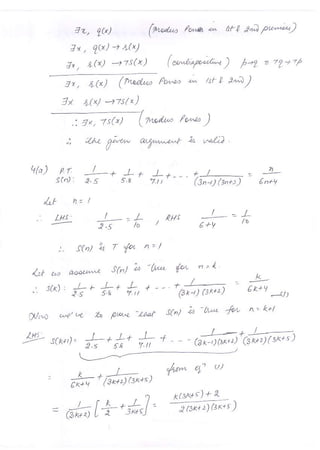 ∃x, q(x) (Modus Ponens in 1st & 2nd premises)
∃x, q(x) → r(x)
∃x, r(x) → ⊤S(x) (contrapositive) p→q ≡ ⊤q→⊤p
∃x, r(x) (Modus Ponens in 1st & 2nd)
∃x r(x) → ⊤S(x)
∴ ∃x, ⊤S(x) (Modus Ponens)
∴ the given argument is valid.
4(a) P.T. S(n): 1/2.5 + 1/5.8 + 1/8.11 + - - - + 1/(3n-1)(3n+2) = n/6n+4
Let n = 1
∴ LHS: 1/2.5 = 1/10, RHS 1/6+4 = 1/10
∴ S(n) is T for n=1
Let us assume S(n) is true for n=k
∴ S(k): 1/2.5 + 1/5.8 + 1/8.11 + - - - + 1/(3k-1)(3k+2) = k/6k+4 —(1)
Now we've to prove that S(n) is true for n=k+1
LHS S(k+1): 1/2.5 + 1/5.8 + 1/8.11 + - - - + 1/(3k-1)(3k+2) + 1/(3k+2)(3k+5)
= k/6k+4 + 1/(3k+2)(3k+5) from eqn (1)
= 1/(3k+2) [k/2 + 1/3k+5] = k(3k+5)+2/2(3k+2)(3k+5)